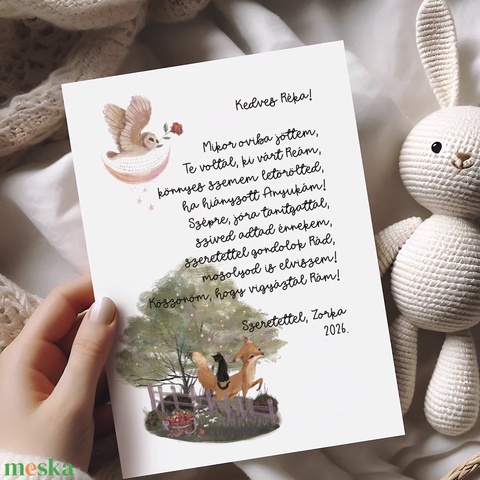 Kedves Réka!
Mikor oviba jöttem,
Te voltál, ki várt Reám,
könnyes szemem letörölted,
ha hiányzott Anyukám!
Szépre, jóra tanítgattál,
szíved adtad énnekem,
szeretettel gondolok Rád,
mosolyod is elviszem!
Köszönöm, hogy vigyáztál Rám!
Szeretettel, Zorka
2026.
meska